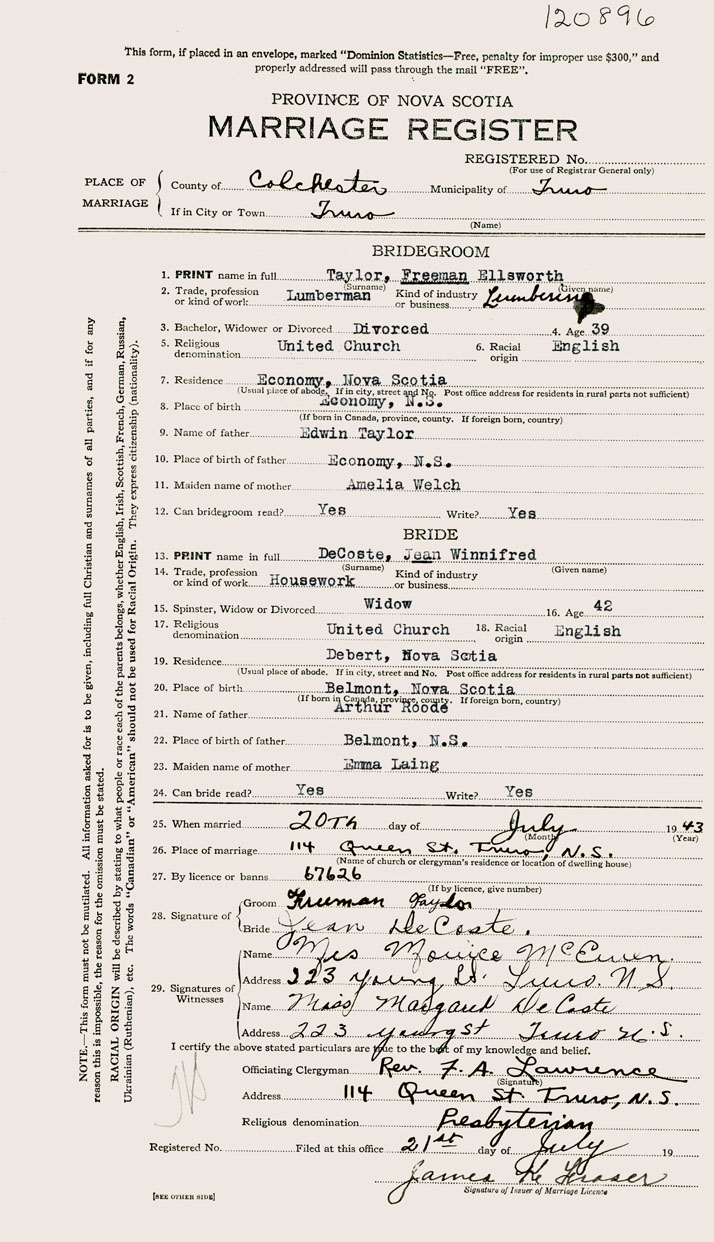 120896
This form, if placed in an envelope, marked "Dominion Statistics—Free, penalty for improper use $300," and
properly addressed will pass through the mail "FREE".
FORM 2
PROVINCE OF NOVA SCOTIA
MARRIAGE REGISTER
REGISTERED No.
(For use of Registrar General only)
PLACE OF MARRIAGE
County of Colchester Municipality of Truro
If in City or Town Truro
(Name)
BRIDEGROOM
1. PRINT name in full Taylor, Freeman Ellsworth
(Surname) (Given name)
2. Trade, profession or kind of work Lumberman Kind of industry or business Lumbering
3. Bachelor, Widower or Divorced Divorced 4. Age 39
5. Religious denomination United Church 6. Racial origin English
7. Residence Economy, Nova Scotia
(Usual place of abode. If in city, street and No. Post office address for residents in rural parts not sufficient)
8. Place of birth Economy, N.S.
(If born in Canada, province, county. If foreign born, country)
9. Name of father Edwin Taylor
10. Place of birth of father Economy, N.S.
11. Maiden name of mother Amelia Welch
12. Can bridegroom read? Yes Write? Yes
BRIDE
13. PRINT name in full DeCoste, Jean Winnifred
(Surname) (Given name)
14. Trade, profession or kind of work Housework Kind of industry or business
15. Spinster, Widow or Divorced Widow 16. Age 42
17. Religious denomination United Church 18. Racial origin English
19. Residence Debert, Nova Scotia
(Usual place of abode. If in city, street and No. Post office address for residents in rural parts not sufficient)
20. Place of birth Belmont, Nova Scotia
(If born in Canada, province, county. If foreign born, country)
21. Name of father Arthur Roode
22. Place of birth of father Belmont, N.S.
23. Maiden name of mother Emma Laing
24. Can bride read? Yes Write? Yes
25. When married 20Th day of July 1943
(Month) (Year)
26. Place of marriage 114 Queen St. Truro, N.S.
(Name of church or clergyman's residence or location of dwelling house)
27. By licence or banns 67626
(If by licence, give number)
28. Signature of
Groom Freeman Taylor
Bride Jean DeCoste.
29. Signatures of Witnesses
Name Mrs McEwen.
Address 223 Young St. Truro. N S.
Name Miss Margaret DeCoste
Address 223 Young St Truro N.S.
I certify the above stated particulars are true to the best of my knowledge and belief.
Officiating Clergyman Rev. F. A. Lawrence
(Signature)
Address 114 Queen St Truro, N.S.
Religious denomination Presbyterian
Registered No. Filed at this office 21st day of July 19
James K Fraser
Signature of Issuer of Marriage Licence
[SEE OTHER SIDE]
NOTE.—This form must not be mutilated. All information asked for is to be given, including full Christian and surnames of all parties, and if for any
reason this is impossible, the reason for the omission must be stated.
RACIAL ORIGIN will be described by stating to what people or race each of the parents belongs, whether English, Irish, Scottish, French, German, Russian,
Ukrainian (Ruthenian), etc. The words "Canadian" or "American" should not be used for Racial Origin. They express citizenship (nationality).